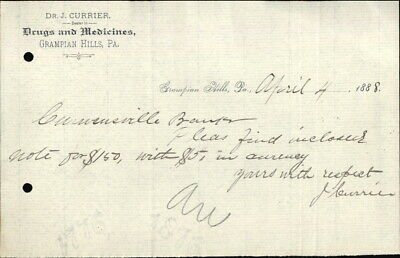 DR. J. CURRIER,
Dealer in
Drugs and Medicines,
GRAMPIAN HILLS, PA.
Grampian Hills, Pa., April 4 1888.
Curwensville Bank
Pleas find inclosed
note for $150, with $5 in curency
yours with respect
J Currier